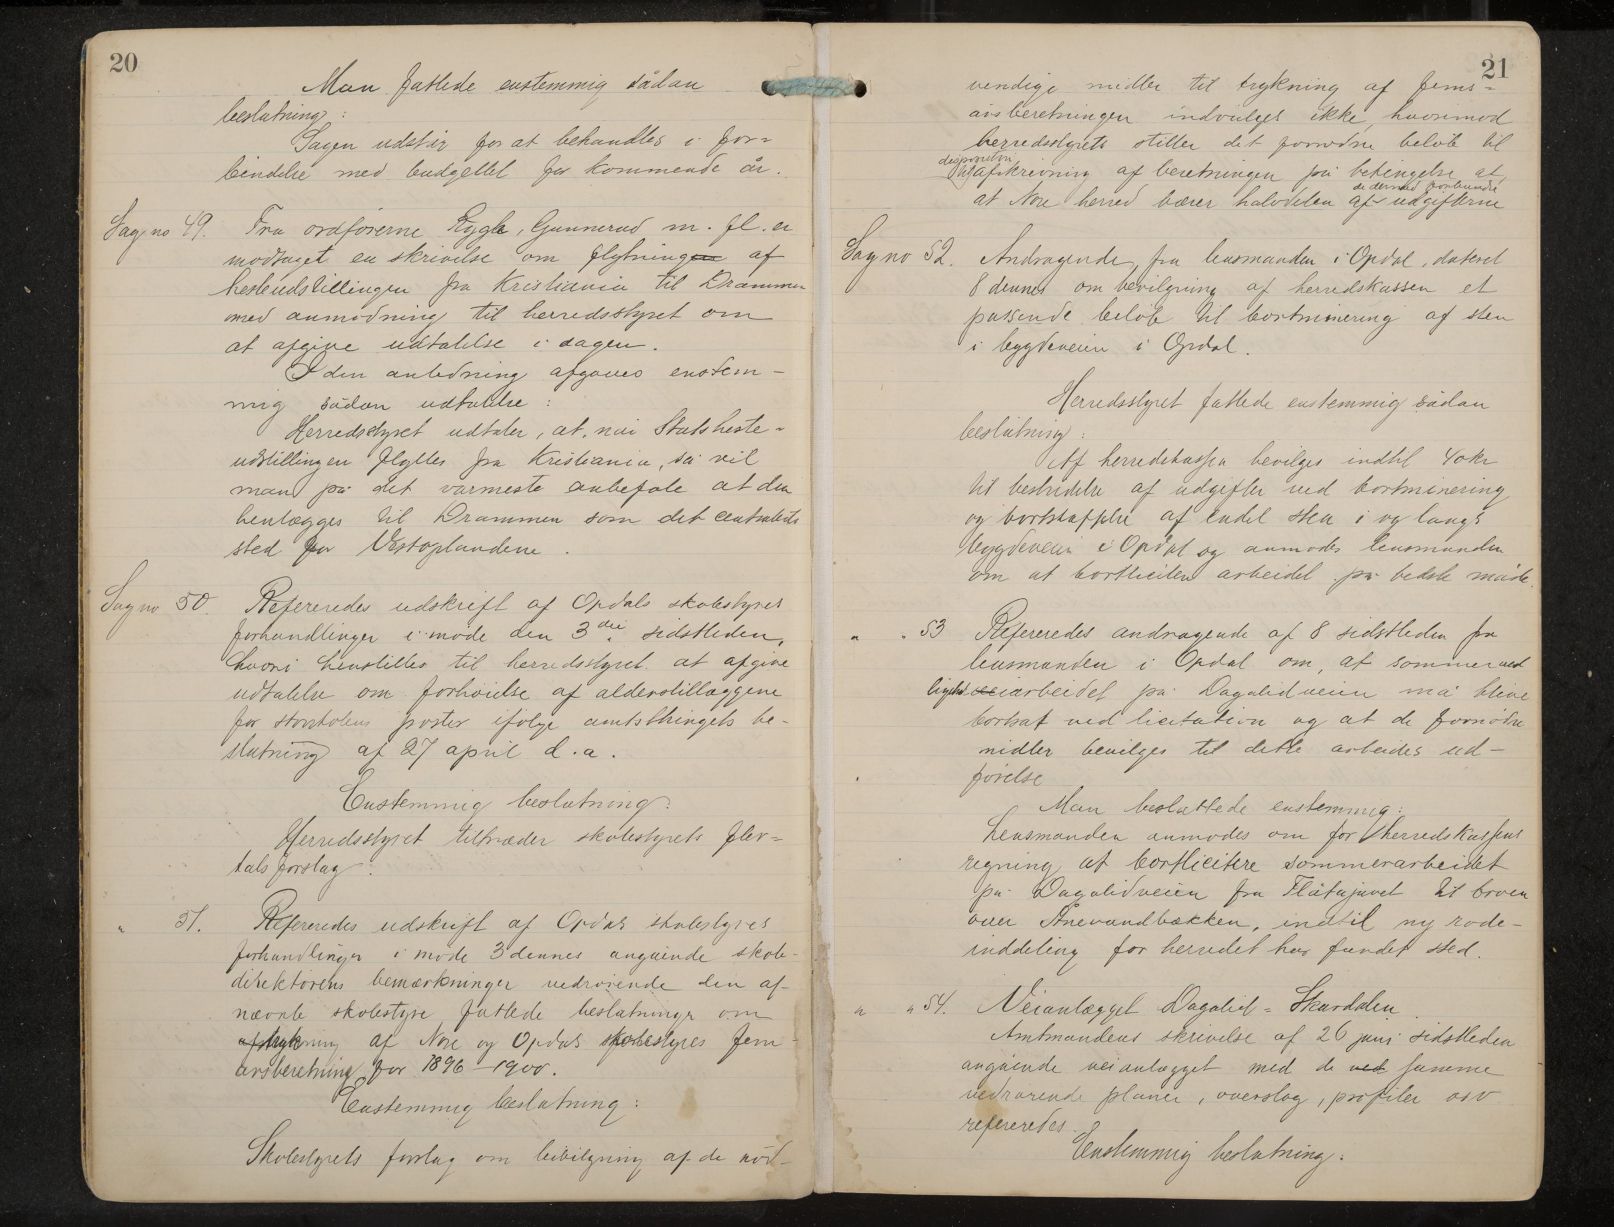 20
Man fattede enstemmig sådan
beslutning:
Sagen udstår for at behandles i for-
bindelse med budgettet for kommende år.
Sag no 49. Fra ordførerne Rygh, Gunnerud m. fl. er
modtaget en skrivelse om flytning af
hesteudstillingen fra Kristiania til Drammen
med anmodning til herredsstyret om
at afgive udtalelse i sagen.
I den anledning afgaves enstem-
mig sådan udtalelse:
Herredsstyret udtaler, at når Statsheste-
udstillingen flyttes fra Kristiania, så vil
man på det varmeste anbefale at den
henlægges til Drammen som det centraleste
sted for Vestoplandene.
Sag no 50. Refereredes udskrift af Opdals skolestyres
forhandlinger i møde den 3die sidstleden,
hvori henstilles til herredsstyret at afgive
udtalelse om forhøielse af alderstillæggene
for storskolens poster ifølge amtsthingets be-
slutning af 27 april d.a.
Enstemmig beslutning:
Herredsstyret tiltræder skolestyrets fler-
talsforslag.
" 51. Refereredes udskrift af Opdals skolestyres
forhandlinger i møde 3 dennes angående skole-
direktørens bemærkninger vedrørende den af
nævnte skolestyre fattede beslutninger om
aftrykning af Nore og Opdals skolestyres fem-
årsberetning for 1896-1900.
Enstemmig beslutning:
Skolestyrets forslag om bevilgning af de nød-
21
vendige midler til trykning af fems-
årsberetningen indvilges ikke, hvorimod
herredsstyrets stiller det fornødne beløb til
disposition
til afskrivning af beretningen på betingelse at,
de dermed forbundne
at Nore herred bærer halvdelen af udgifterne
Sag no 52. Andragende fra lensmanden i Opdal, dateret
8 dennes om bevilgning af herredskassen et
passende beløb til bortminering af sten
i bygdeveien i Opdal.
Herredsstyret fattede enstemmig sådan
beslutning:
Af herredskassen bevilges indtil 40 kr
til bestridelse af udgifter ved bortminering
og bortskaffelse af endel sten i og langs
bygdeveien i Opdal og anmodes lensmanden
om at bortlicitere arbeidet på bedste måde.
" " 53 Refereredes andragende af 8 sidstleden fra
lensmanden i Opdal om, at sommerved
ligeh. veiarbeidet på Dagalidveien må blive
bortsat ved licitation og at de fornødne
midler bevilges til dette arbeides ud-
førelse
Man besluttede enstemmig:
Lensmanden anmodes om for herredskassens
regning at bortlicitere sommerarbeidet
på Dagalidveien fra Flåtajuvet til broen
over Ånevandbækken, indtil ny rode-
inddeling for herredet har fundet sted.
" " 54. Veianlægget Dagalid - Skurdalen.
Amtmandens skrivelse af 26 juni sidstleden
angående veianlægget med de ved samme
vedrørende planer, overslag, profiler osv
refereredes.
Enstemmig beslutning: